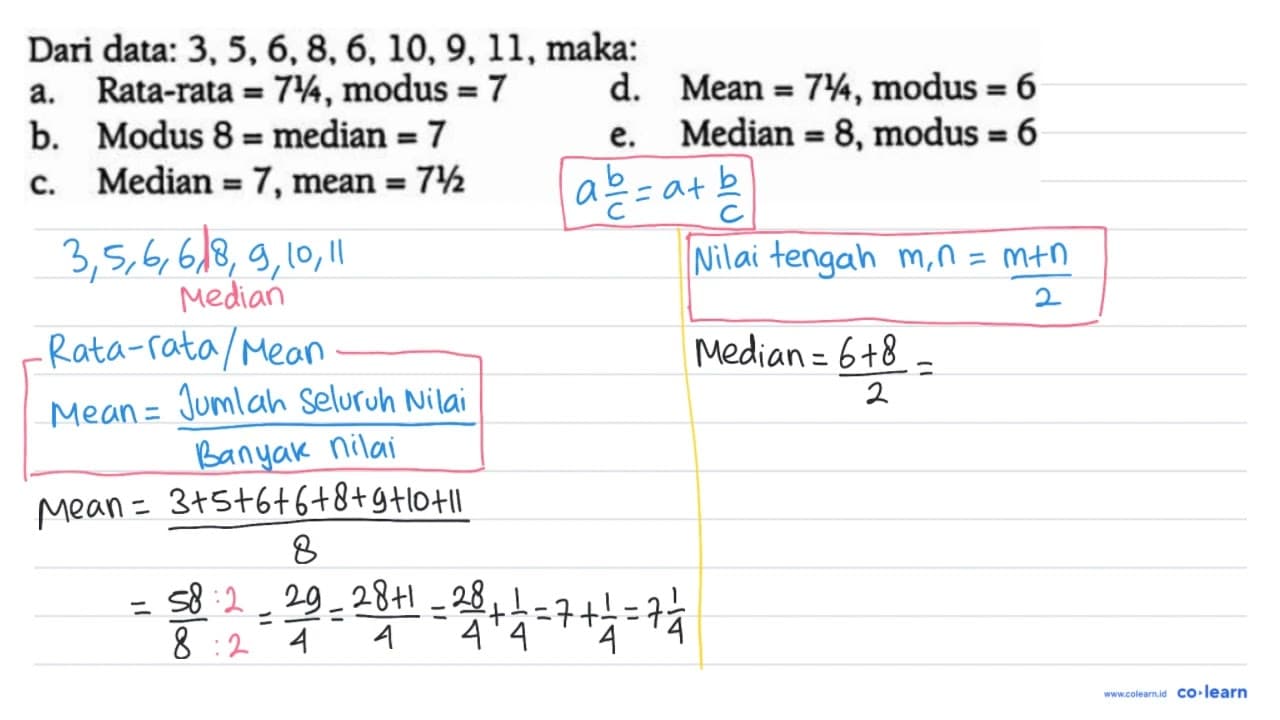 Dari data: 3, 5, 6, 8, 6, 10, 9, 11, maka:
a. Rata-rata = 7¼, modus = 7
b. Modus 8 = median = 7
c. Median = 7, mean = 7½
d. Mean = 7¼, modus = 6
e. Median = 8, modus = 6
a b/c = a + b/c
3, 5, 6, 6, | 8, 9, 10, 11
Median
Rata-rata/Mean
Mean = Jumlah Seluruh Nilai / Banyak nilai
Mean = 3+5+6+6+8+9+10+11 / 8
= 58 :2 / 8 :2 = 29/4 = 28+1/4 = 28/4 + 1/4 = 7 + 1/4 = 7 1/4
Nilai tengah m,n = m+n / 2
Median = 6+8 / 2 =
www.colearn.id co·learn